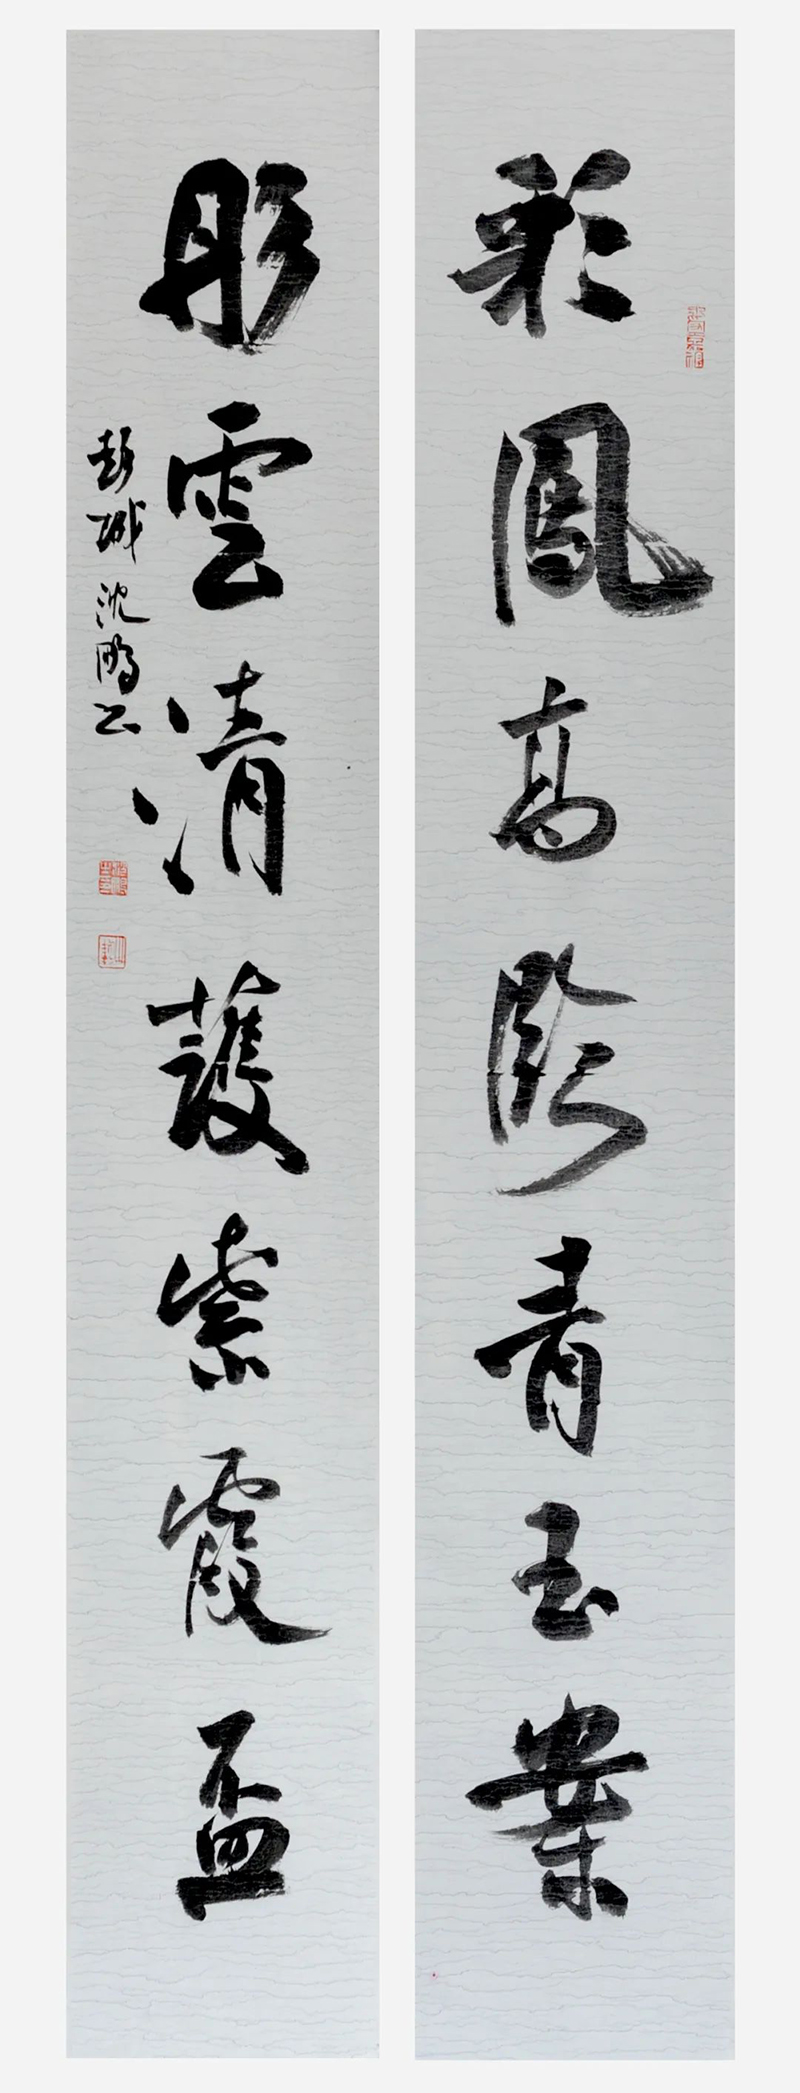 彩鳳高臨青玉案
彤雲清護紫霞盃
彭城沈鵬书